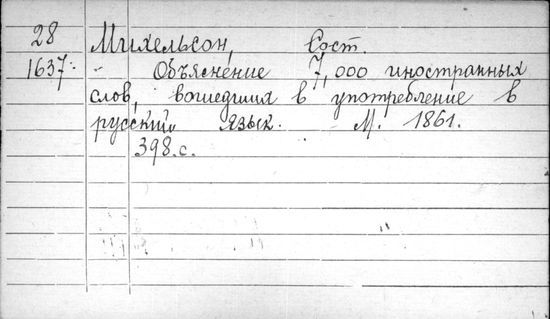 28 Михельсон, Сост.
1637: - Объяснение 7,000 иностранных
слов, вошедших в употребление в
русский язык. М. 1861.
398.с.